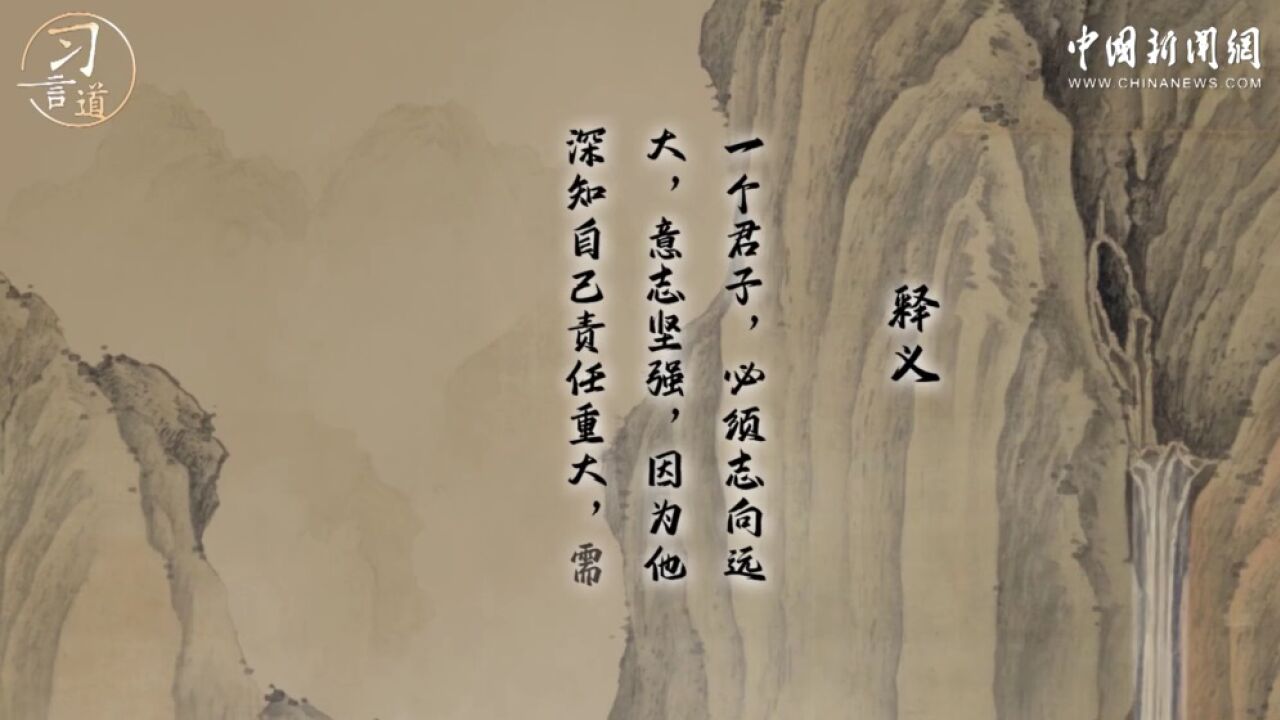 习言道
中国新闻網
WWW.CHINANEWS.COM
释义
一个君子，必须志向远
大，意志坚强，因为他
深知自己责任重大，需